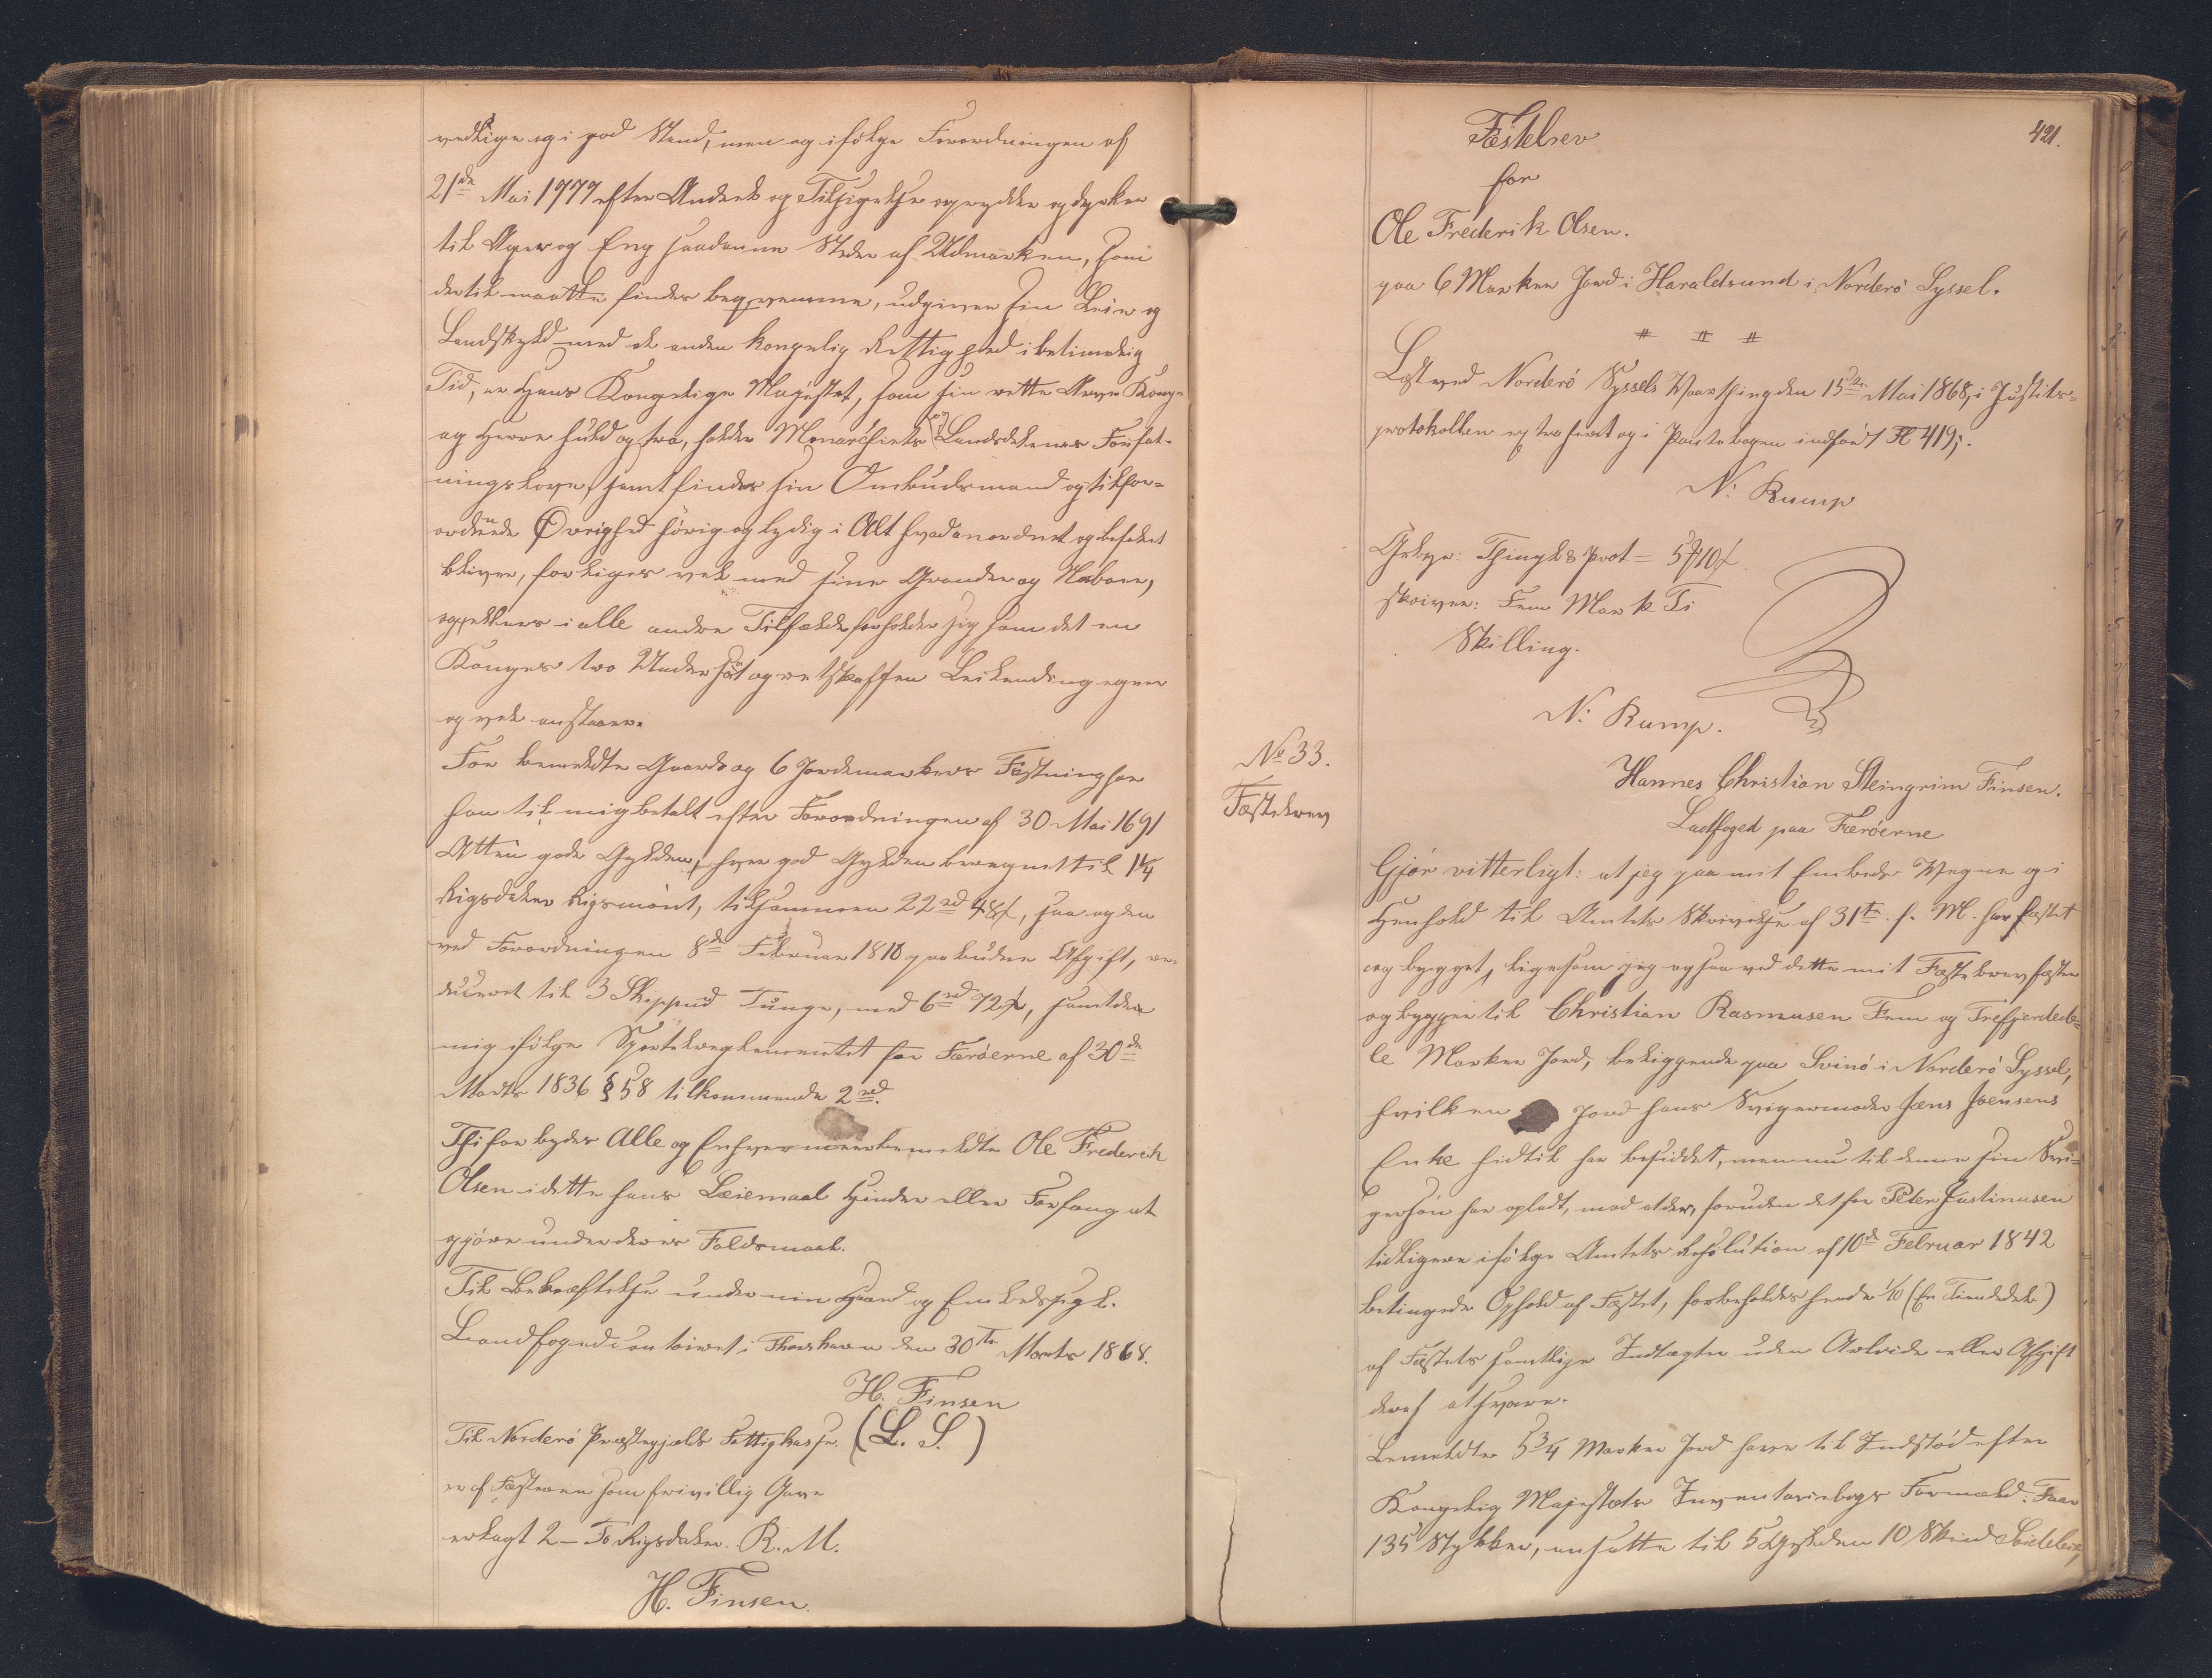 vedlige og i god Stand, men og ifølge Forordningen af
21de Mai 1777 efter Anviis og Tilsigelse oprydder og dyrker
til Ager og Eng saadanne Steder af Udmarken, som
dertil maatte findes beqvemme, udgiver sin Leie og
Landskyld med al anden kongelig Rettighed i betimelig
Tid, er Hans Kongelige Majestæt, som sin rette Arve Konge
og Herre huld og tro, holder Monarchiets og Landsdelenes Forfat-
ningslove, samt findes sin Ombudsmand og tilfor-
ordnede Øvrighed hørig og lydig i Alt hvad anordnet og befalet
bliver, forliges vel med sine Grander og Naboer,
og ellers i alle andre Tilfælde forholder sig som det en
Konges tro Undersaat og retskaffen Leilending egner
og vel anstaaer.
For bemeldte Gaards og 6 Jordemarkers Fæstning har
han til mig betalt efter Forordningen af 30 Mai 1691
Atten gode Gylden, hver god Gylden beregnet til 1¼
Rigsdaler Rigsmønt, tilsammen 22 rd 48 ß, saa og den
ved Forordningen 8de Februar 1810 paabudne Afgift, re-
duceret til 3 Skippund Tunge, med 6 rd 72 ß, samt den
mig ifølge Sportelreglementet for Færøerne af 30de
Marts 1836 § 58 tilkommende 2 rd.
Thi forbydes Alle og Enhver meerbemeldte Ole Frederik
Olsen i dette hans Leiemaal Hinder eller Forfang at
gjøre under deres Faldsmaal.
Til Bekræftelse under min Haand og Embedssegl.
Landfogedcontoiret i Thorshavn den 30te Marts 1868.
H. Finsen
(L. S.)
Til Norderø Præstegjælds Fattigkasse
er af Fæsteren som frivillig Gave
erlagt 2 – To Rigsdaler. R. M.
H. Finsen.
421.
Fæstebrev
for
Ole Frederik Olsen.
paa 6 Marker Jord i Haraldsund i Norderø Syssel.
# # #
Læst ved Norderø Syssels Vaarthing den 15de Mai 1868, i Justits-
protokollen extraheret og i Pantebogen indført Fol 419.
N: Rump
Gebyr: Thingl & Prot = 5 ℳ 10 ß
skriver: Fem Mark Ti
Skilling.
N: Rump.
No 33.
Fæstebrev
Hannes Christian Steingrim Finsen.
Ladfoged paa Færøerne
Gjør vitterligt: at jeg paa mit Embeds Vegne og i
Henhold til Amtets Skrivelse af 31te f. M. har fæstet
og bygget, ligesom jeg ogsaa ved dette mit Fæstebrev fæster
og bygger til Christian Rasmusen Fem og Trefjerdede-
le Marker Jord, beliggende paa Svinø i Norderø Syssel,
hvilken Jord hans Svigermoder Jens Joensens
Enke hidtil har besiddet, men nu til denne sin Svi-
gersøn har opladt, mod at der, foruden det for Peter Justinusen
tidligere ifølge Amtets Resolution af 10de Februar 1842
betingede Ophold af Fæstet, forbeholdes hende 1/10 (En Tiendedel)
af Fæstets samtlige Indtægter uden Arbeide eller Afgift
deraf at svare.
Bemeldte 5¾ Marker Jord have til Indstød efter
Kongelig Majestæts Inventariebogs Formeld: Faar
135 Stykker, ansatte til 5 Gylden 10 Skind